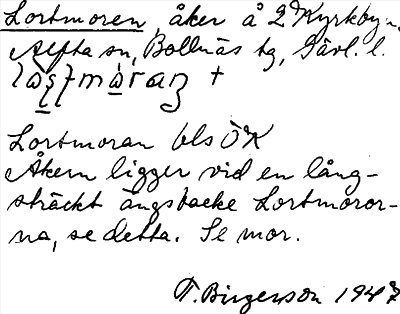 Lortmoren, åker å 2 Kyrkbyn,
Alfta sn, Bollnäs tg, Gävl. l.
Lortmoran bls ÖK
Åkern ligger vid en lång-
sträckt ängsbacke Lortmoror-
na, se detta. Se mor.
T. Birgerson 1947